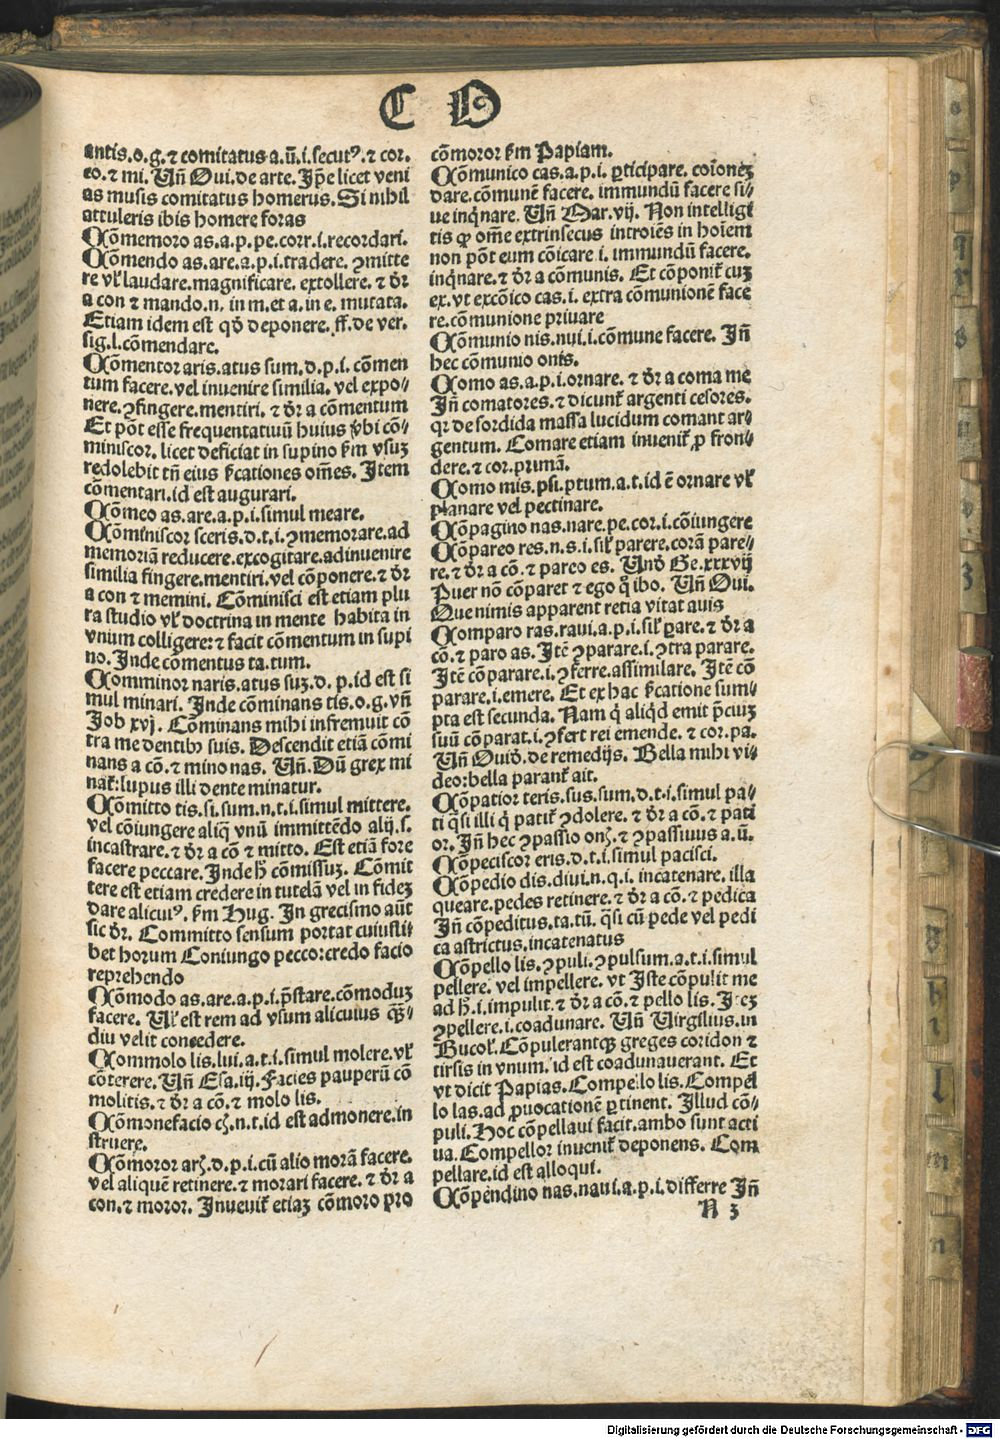 C O
antis.o.g.⁊ comitatus a.ū.i.secutꝰ.⁊ cor.
eo.⁊ mi. Uñ Oui.de arte. Ip̄e licet veni
as musis comitatus homerus. Si nihil
attuleris ibis homere foras
Cōmemoro as.a.p.pe.corr.i.recordari.
Cōmendo as.are.a.p.i.tradere. ꝯmitte
re vł laudare.magnificare. extollere. ⁊ dr̄
a con ⁊ mando.n. in m.et a.in e. mutata.
Etiam idem est qd̄ deponere. ff.de ver.
sig.l.cōmendare.
Cōmentor aris.atus sum.d.p.i. cōmen
tum facere.vel inuenire similia. vel expo⸗
nere.ꝯfingere.mentiri. ⁊ dr̄ a cōmentum
Et pōt esse frequentatiuū huius v̄bi cō⸗
miniscor. licet deficiat in supino ẜm vsuꝫ
redolebit tñ eius ẜcationes om̄es. Item
cōmentari.id est augurari.
Cōmeo as.are.a.p.i.simul meare.
Cōminiscor sceris.d.t.i.ꝯmemorare.ad
memoriā reducere.excogitare.adinuenire
similia fingere.mentiri.vel cōponere.⁊ dr̄
a con ⁊ memini. Cōminisci est etiam plu
ra studio vł doctrina in mente habita in
vnium colligere: ⁊ facit cōmentum in supi
no. Inde cōmentus ta.tum.
Comminor naris.atus suꝫ.d. p.id est si
mul minari. Inde cōminans tis.o.g.vñ
Job xvj. Cōminans mihi infremuit cō
tra me dentibꝫ suis. Descendit etiā cōmi
nans a cō.⁊ mino nas. Uñ. Dū grex mi
nať:lupus illi dente minatur.
Cōmitto tis.si.sum.n.t.i.simul mittere.
vel cōiungere aliq̄ vnū immittēdo alij.s.
incastrare.⁊ dr̄ a cō ⁊ mitto. Est etiā fore
facere peccare. Inde h̄ cōmissuꝫ. Cōmit
tere est etiam credere in tutelā vel in fideꝫ
dare alicuiꝰ. ẜm Hug. In grecismo aūt
sic dr̄. Committo sensum portat cuiusli⸗
bet horum Coniungo pecco:credo facio
reprehendo
Cōmodo as.are.a.p.i.p̄stare.cōmoduꝫ
facere. Uł est rem ad vsum alicuius qᷓꝫ⸗
diu velit concedere.
Commolo lis.lui.a.t.i.simul molere.vł
cōterere. Uñ Esa.iij. Facies pauperū cō
molitis.⁊ dr̄ a cō.⁊ molo lis.
Cōmonefacio cꝭ.n.t.id est admonere.in
struere.
Cōmoror arꝭ.d.p.i.cū alio morā facere.
vel aliquē retinere.⁊ morari facere. ⁊ dr̄ a
con.⁊ moror. Inueniť etiaꝫ cōmoro pro
cōmoror ẜm Papiam.
Cōmunico cas.a.p.i. ꝑticipare. coīoneꝫ
dare.cōmunē facere. immundū facere si⸗
ue inq̄nare. Uñ Mar.vij. Non intelligi
tis ꝙ om̄e extrinsecus introiēs in hoīem
non pōt eum cōicare.i. immundū facere.
inq̄nare.⁊ dr̄ a cōmunis. Et cōponiť cuꝫ
ex.vt excōico cas.i. extra cōmunionē face
re.cōmunione priuare
Cōmunio nis.nui.i.cōmune facere. Iñ
hec cōmunio onis.
Como as.a.p.i.ornare. ⁊ dr̄ a coma me
Iñ comatores.⁊ dicunť argenti cesores.
qr de sordida massa lucidum comant ar⸗
gentum. Comare etiam inueniť ꝓ fron⸗
dere.⁊ cor.primā.
Como mis.psi.ptum.a.t.id ē ornare vł
planare vel pectinare.
Cōpagino nas.nare.pe.cor.i.cōiungere
Cōpareo res.n.s.i.sił parere.corā pare⸗
re.⁊ dr̄ a cō.⁊ pareo es. Und̄ Ge.xxxvij
Puer nō cōparet ⁊ ego q̊ ibo. Uñ Oui.
Que nimis apparent retia vitat auis
Comparo ras.raui.a.p.i.sił ꝑare.⁊ dr̄ a
cō.⁊ paro as. Itē ꝯparare.i.ꝯtra parare.
Itē cōparare.i.ꝯferre.assimilare. Itē cō
parare.i.emere. Et ex hac ẜcatione sum⸗
pta est secunda. Nam q̇ aliq̇d emit p̄ciuꝫ
suū cōparat.i.ꝯfert rei emende. ⁊ cor.pa.
Uñ Ouid̄.de remedijs. Bella mihi vi⸗
deo:bella paranť ait.
Cōpatior teris.sus.sum.d.t.i.simul pa⸗
ti q̄si illi q̇ patiť ꝯdolere. ⁊ dr̄ a cō.⁊ pati
or. Iñ hec ꝯpassio onꝭ.⁊ ꝯpassiuus a.ū.
Cōpeciscor eris.d.t.i.simul pacisci.
Cōpedio dis.diui.n.q.i. incatenare. illa
queare.pedes retinere.⁊ dr̄ a cō.⁊ pedica
Iñ cōpeditus.ta.tū. q̄si cū pede vel pedi
ca astrictus.incatenatus
Cōpello lis.ꝯpuli.ꝯpulsum.a.t.i.simul
pellere. vel impellere. vt Iste cōpulit me
ad h̄.i.impulit.⁊ dr̄ a cō.⁊ pello lis. Iteꝫ
ꝯpellere.i.coadunare. Uñ Uirgilius.in
Bucoł. Cōpulerantqꝫ greges coridon ⁊
tirsis in vnum. id est coadunauerant. Et
vt dicit Papias. Compello lis. Compel
lo las.ad ꝓuocationē ꝑtinent. Illud cō⸗
puli. Hoc cōpellaui facit.ambo sunt acti
ua. Compellor inueniť deponens. Com
pellare.id est alloqui.
Cōpendino nas.naui.a.p.i.differre Iñ
N 3
Digitalisierung gefördert durch die Deutsche Forschungsgemeinschaft - DFG